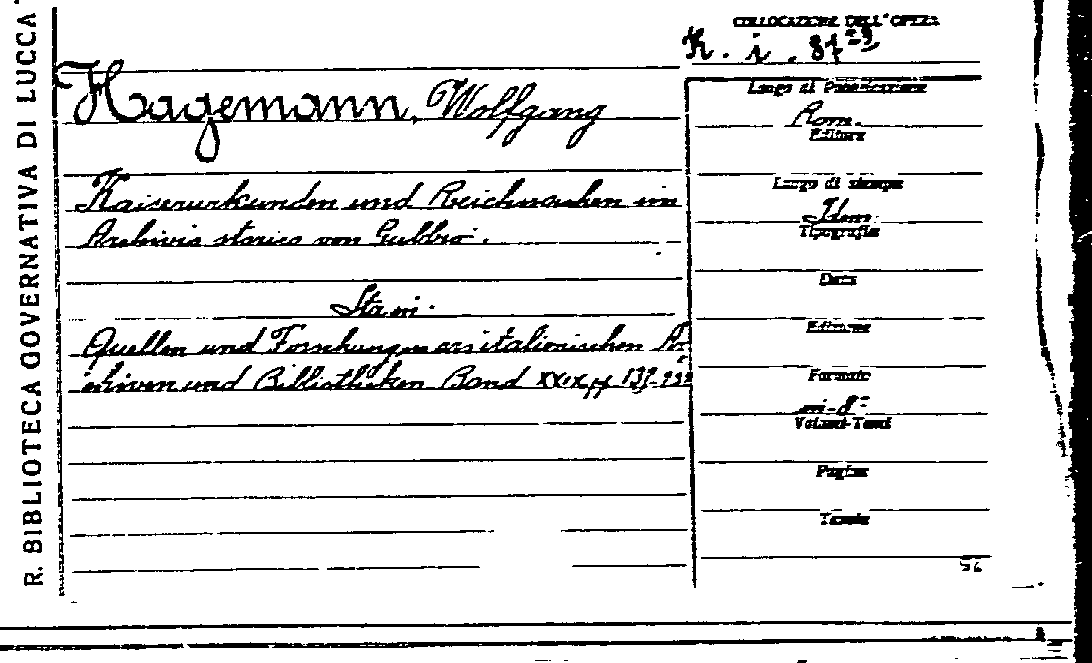 R. BIBLIOTECA GOVERNATIVA DI LUCCA
COLLOCAZIONE DELL'OPERA
K. i. 87
Hagemann, Wolfgang
Kaiserurkunden und Reichssachen im
Archivio storico von Gubbio.
Sta in:
Quellen und Forschungen aus italienischen Ar
chiven und Bibliotheken Band XXIX pp
Luogo di Pubblicazione
Rom.
Editore
Luogo di stampa
Idem
Tipografia
Data
Edizione
Formato
in-8°
Volumi-Tomi
Pagine
Tavole
56